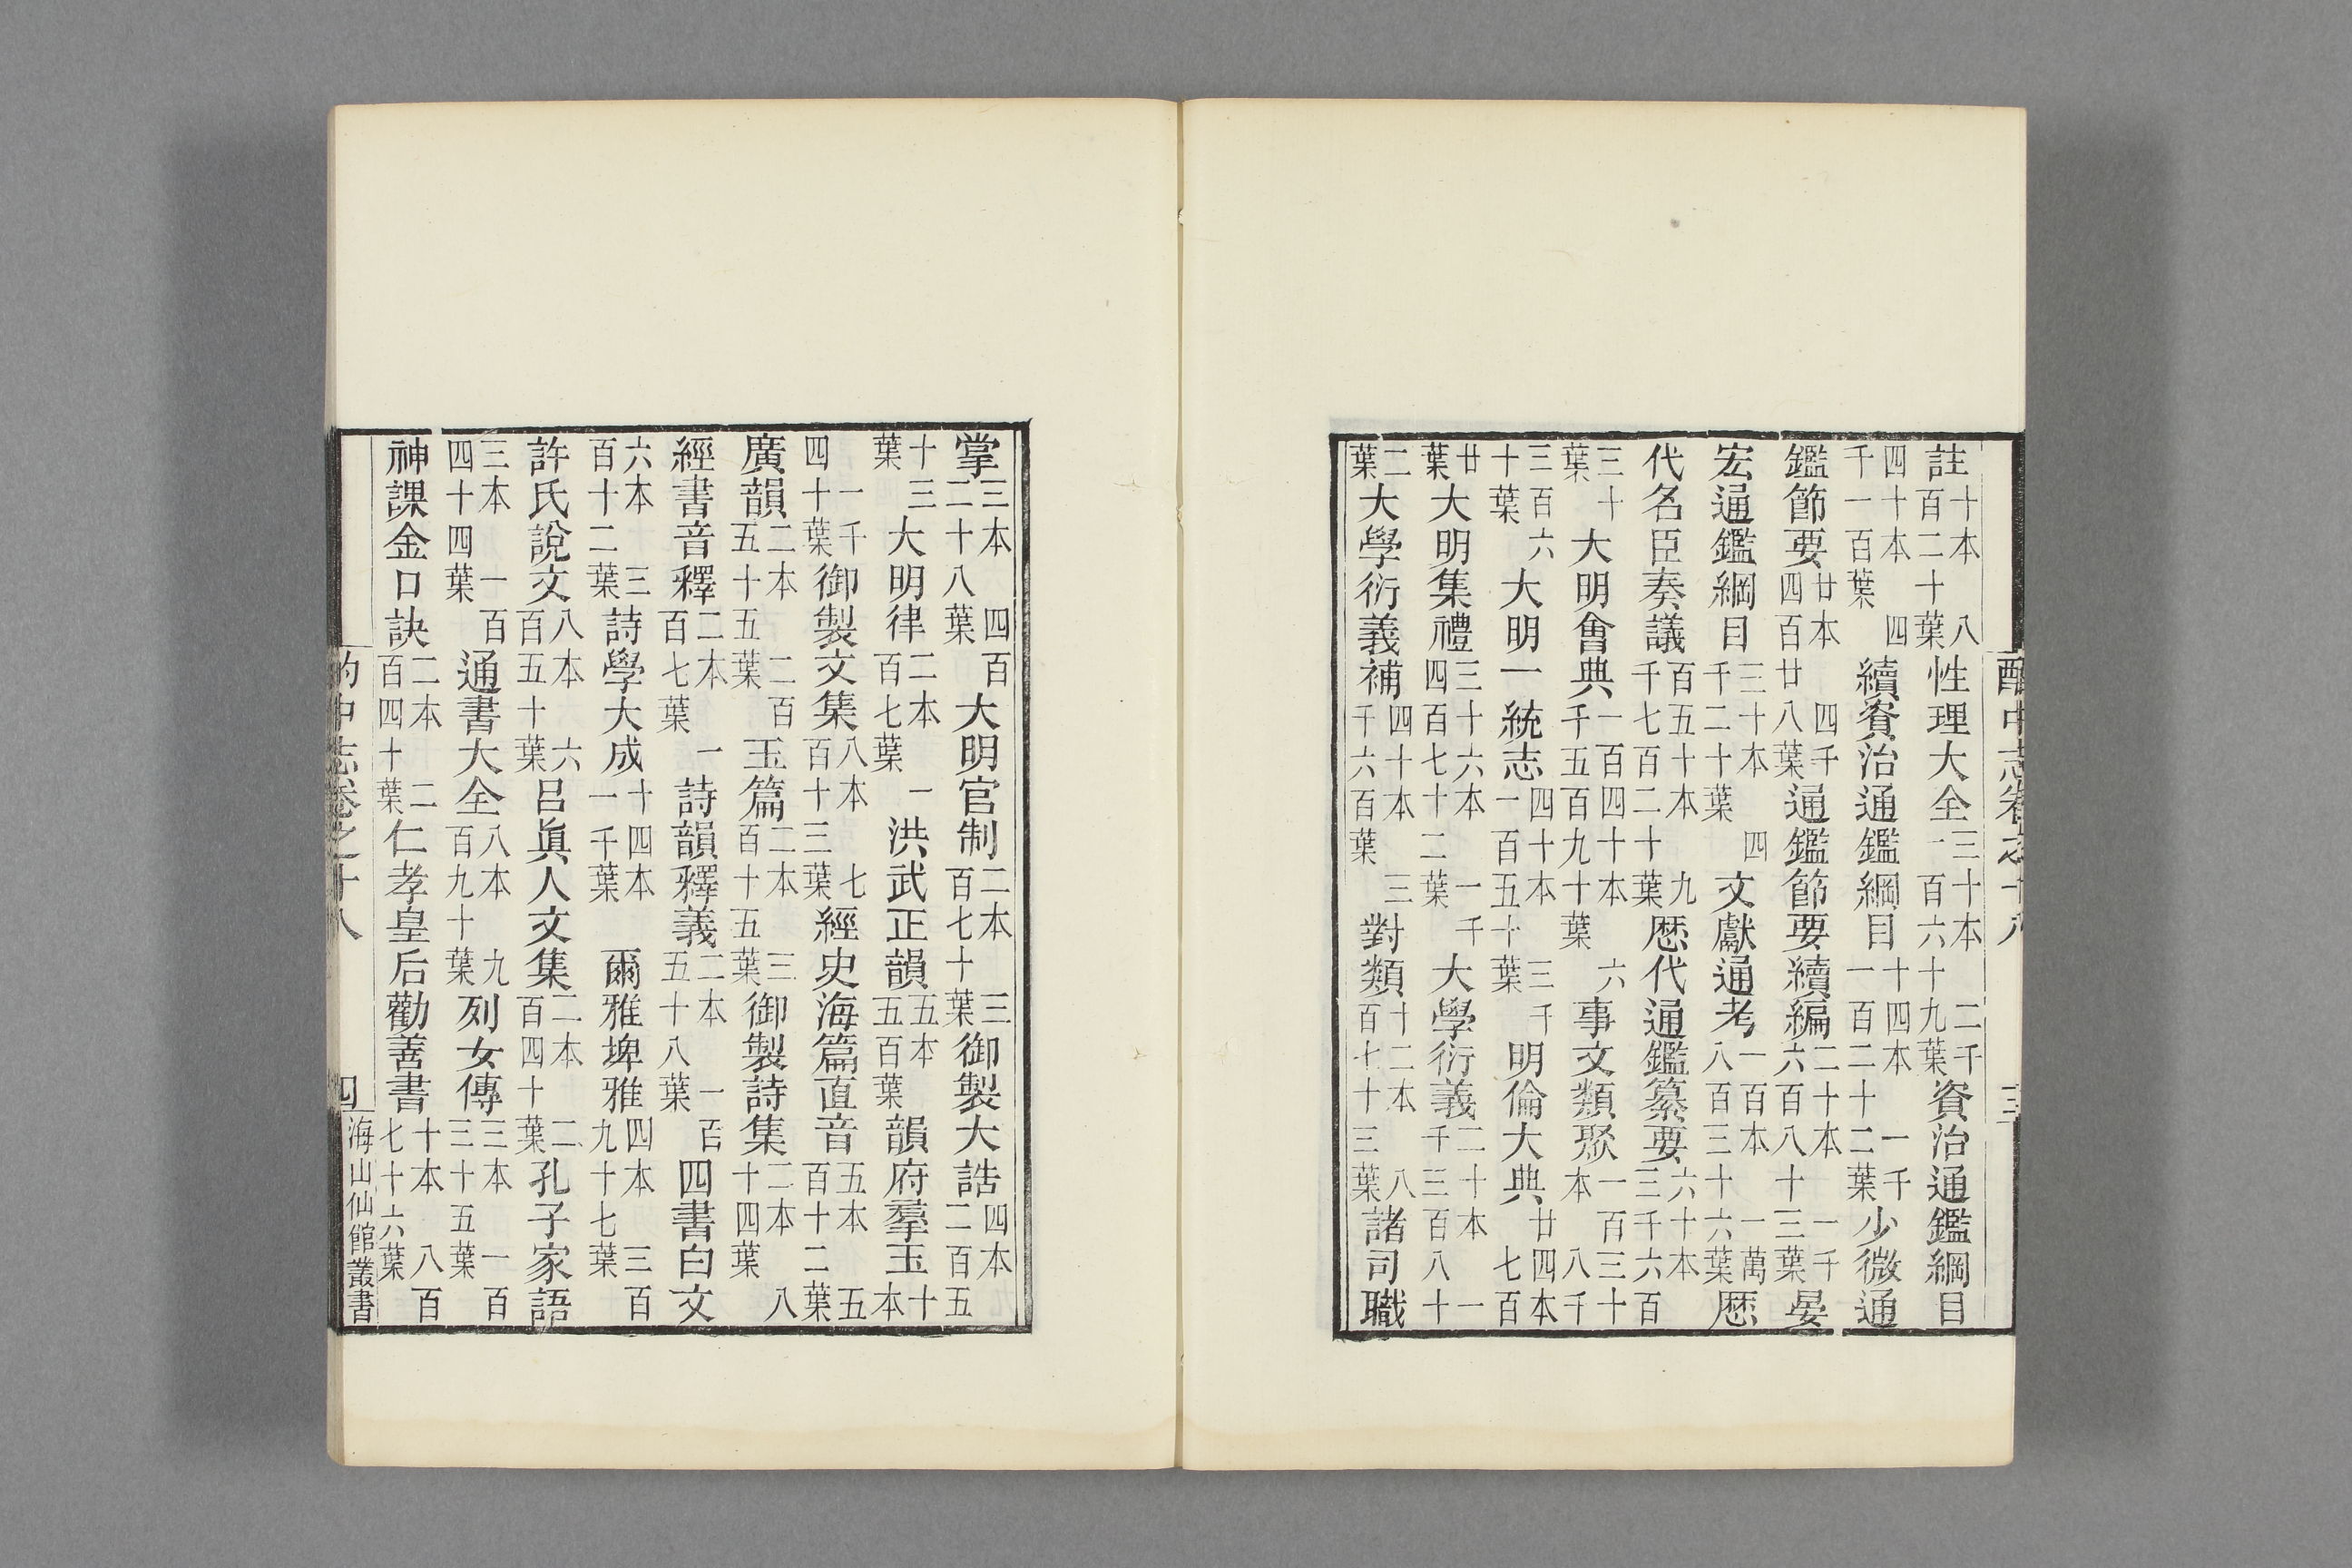 酌中志卷之十八 三
註十本八百二十葉性理大全三十本二千一百六十九葉資治通鑑綱目
四十本四千一百葉續資治通鑑綱目十四本一千一百二十二葉少微通
鑑節要廿本四千四百廿八葉通鑑節要續編二十本一千六百八十三葉晏
宏通鑑綱目三十本四千二十葉文獻通考一百本一萬八百三十六葉厯
代名臣奏議百五十本九千七百二十葉厯代通鑑纂要六十本三千六百
三十葉大明會典一百四十本六千五百九十葉事文類聚一百三十本八千
三百六十葉大明一統志四十本三千一百五十葉明倫大典廿四本七百
廿葉大明集禮三十六本一千四百七十二葉大學衍義二十本一千三百八十
二葉大學衍義補四十本三千六百葉對類十二本八百七十三葉諸司職
掌三本四百二十八葉大明官制二本三百七十葉御製大誥四本二百五
十三葉大明律二本一百七葉洪武正韻五本五百葉韻府羣玉十本
一千四十葉御製文集八本七百十三葉經史海篇直音五本五百十二葉
廣韻二本二百五十五葉玉篇二本三百十五葉御製詩集二本八十四葉
經書音釋二本一百七葉詩韻釋義二本一百五十八葉四書白文
六本三百十二葉詩學大成十四本一千葉爾雅埤雅四本三百九十七葉
許氏說文八本六百五十葉呂眞人文集二本二百四十葉孔子家語
三本一百四十四葉通書大全八本九百九十葉列女傳三本一百三十五葉
神課金口訣二本二百四十葉仁孝皇后勸善書十本八百七十六葉
酌中志卷之十八 四 海山仙館叢書